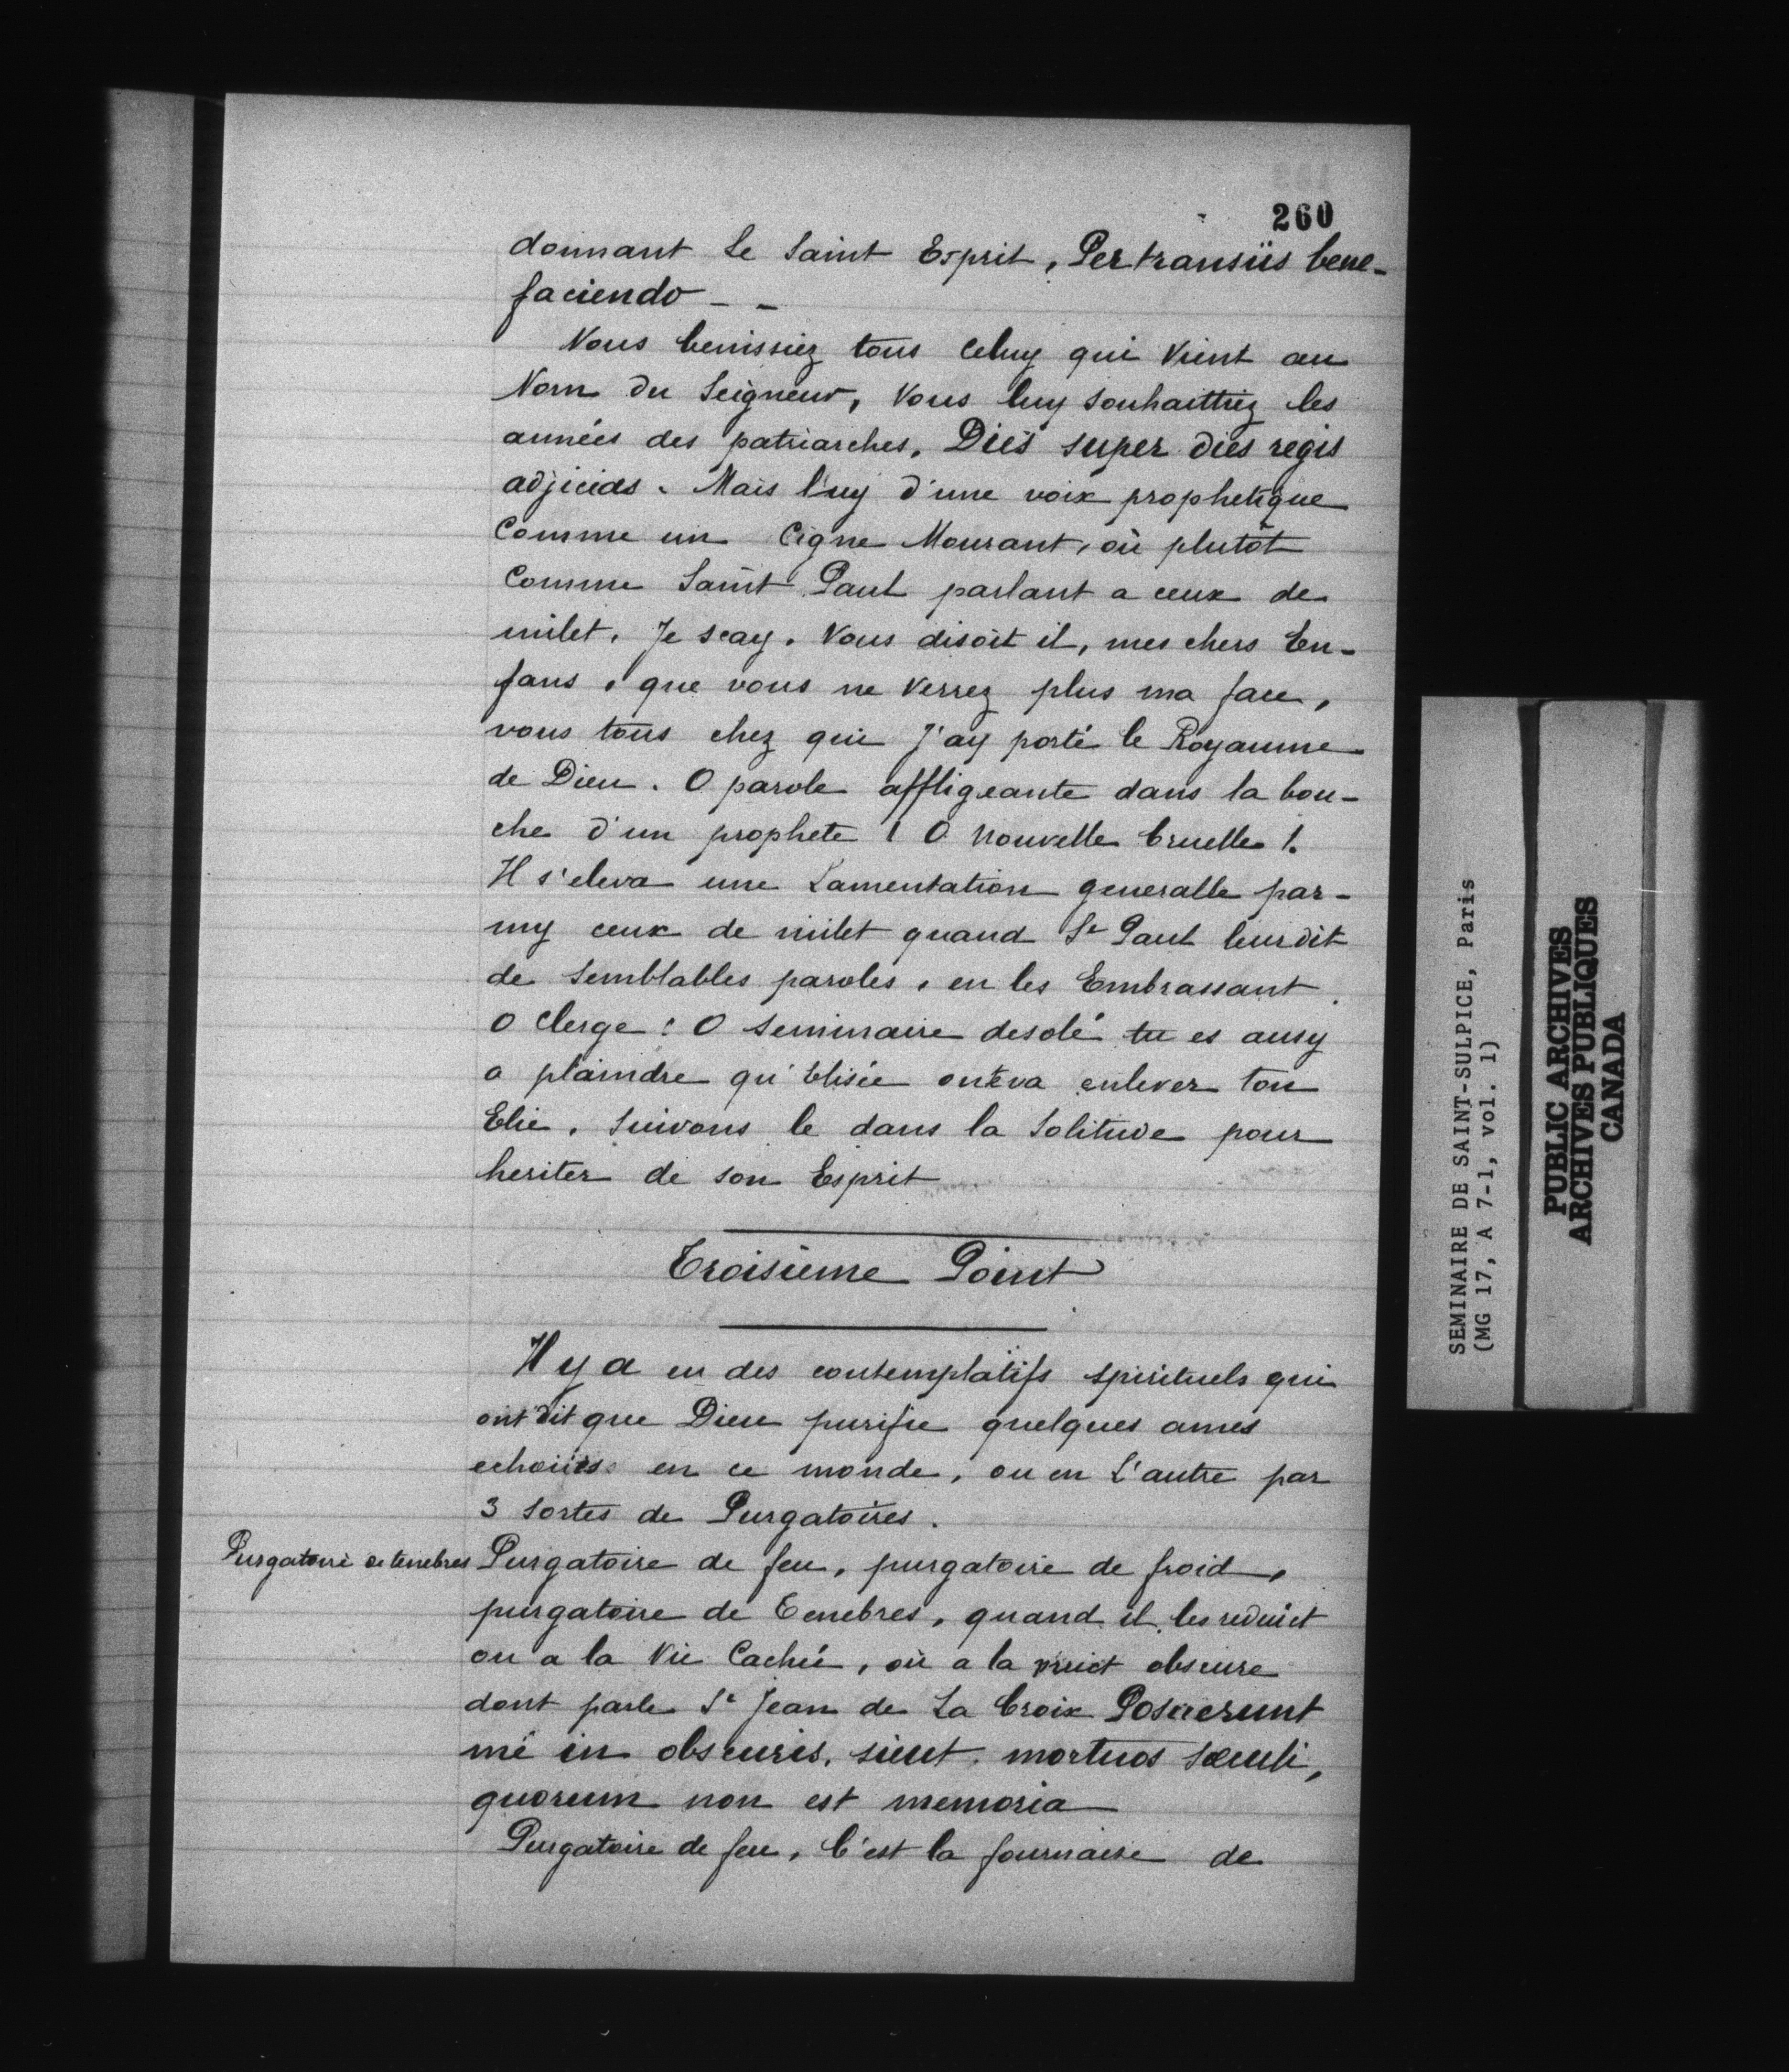 260
donnant Le Saint Esprit, Pertransiis bene-
faciendo - -
Vous benissiez tous celuy qui vient au
Nom du Seigneur, vous luy souhaittiez les
années des patriarches, Dies super dies regis
adjicias. Mais luy d'une voix prophetique
Comme un Cigne Mourant, où plutôt
Comme Saint Paul parlant a ceux de
milet. Je scay. Vous disoit il, mes chers En-
fans, que vous ne verrez plus ma face,
vous tous chez qui J'ay porté le Royaume
de Dieu. O parole affligeante dans la bou-
che d'un prophete ! O nouvelle Cruelle !.
Il s'eleva une Lamentation generalle par-
my ceux de milet quand St Paul leur dit
de Semblables paroles, en les Embrassant.
O Clerge ! O Seminaire desolé tu es ausy
a plaindre qu'Elisée on t'eva enlever ton
Elie. Suivons le dans la Solitude pour
heriter de son Esprit
Troisieme Point
Il y a eu des contemplatifs spirituels qui
ont dit que Dieu purifie quelques ames
echoiies en ce monde, ou en L'autre par
3 Sortes de Purgatoires.
Purgatoire de tenebres
Purgatoire de feu, purgatoire de froid,
purgatoire de Tenebres, quand il les reduict
ou a la Vie Cachée, où a la nuict obscure
dont parle St Jean de La Croix Posuerunt
mé in obscuris, sicut mortuos sæculi,
quorum non est memoria
Purgatoire de feu, C'est la fournaise de
SEMINAIRE DE SAINT-SULPICE, Paris
(MG 17, A 7-1, vol. 1)
PUBLIC ARCHIVES
ARCHIVES PUBLIQUES
CANADA